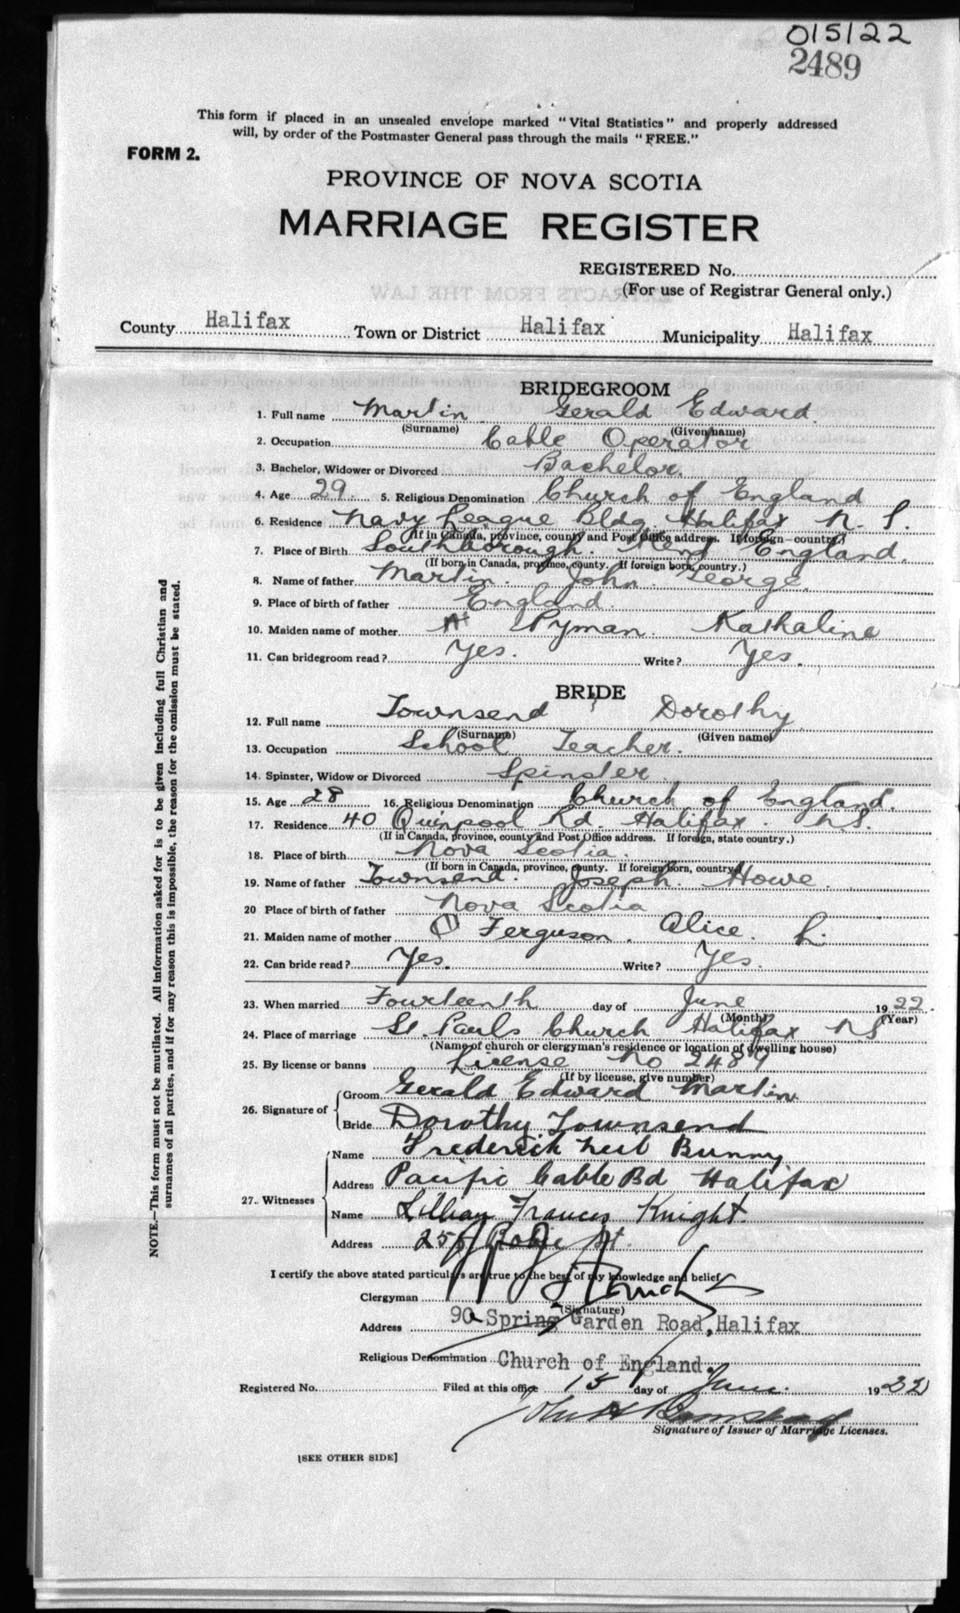 015122
2489
This form if placed in an unsealed envelope marked "Vital Statistics" and properly addressed
will, by order of the Postmaster General pass through the mails "FREE."
FORM 2.
PROVINCE OF NOVA SCOTIA
MARRIAGE REGISTER
REGISTERED No.
(For use of Registrar General only.)
County Halifax Town or District Halifax Municipality Halifax
BRIDEGROOM
1. Full name Martin Gerald Edward
(Surname) (Given name)
2. Occupation Cable Operator
3. Bachelor, Widower or Divorced Bachelor.
4. Age 29 5. Religious Denomination Church of England
6. Residence Navy League Bldg. Halifax N. S.
(If in Canada, province, county and Post Office address. If foreign—country.)
7. Place of Birth Southborough. Kent England.
(If born in Canada, province, county. If foreign born, country.)
8. Name of father Martin. John George.
9. Place of birth of father England.
10. Maiden name of mother Pyman. Kathaline
11. Can bridegroom read? Yes. Write? Yes.
BRIDE
12. Full name Townsend Dorothy
(Surname) (Given name)
13. Occupation School Teacher.
14. Spinster, Widow or Divorced Spinster
15. Age 28 16. Religious Denomination Church of England.
17. Residence 40 Quinpool Rd Halifax. N.S.
(If in Canada, province, county and Post Office address. If foreign, state country.)
18. Place of birth Nova Scotia.
(If born in Canada, province, county. If foreign born, country)
19. Name of father Townsend. Joseph. Howe.
20 Place of birth of father Nova Scotia
21. Maiden name of mother Ferguson. Alice. L.
22. Can bride read? Yes. Write? Yes.
23. When married Fourteenth day of June 1922.
(Month) (Year)
24. Place of marriage St. Pauls Church Halifax NS
(Name of church or clergyman's residence or location of dwelling house)
25. By license or banns License No 2489
(If by license, give number)
26. Signature of Groom Gerald Edward Martin
Bride Dorothy Townsend
27. Witnesses Name Frederick Neil Bunny
Address Pacific Cable Bd Halifax
Name Lillian Frances Knight.
Address Robie St.
I certify the above stated particulars are true to the best of my knowledge and belief
Clergyman
(Signature)
Address 90 Spring Garden Road, Halifax
Religious Denomination Church of England.
Registered No. Filed at this office 15 day of June 1922
John H
Signature of Issuer of Marriage Licenses.
[SEE OTHER SIDE]
NOTE.—This form must not be mutilated. All information asked for is to be given including full Christian and
surnames of all parties, and if for any reason this is impossible, the reason for the omission must be stated.